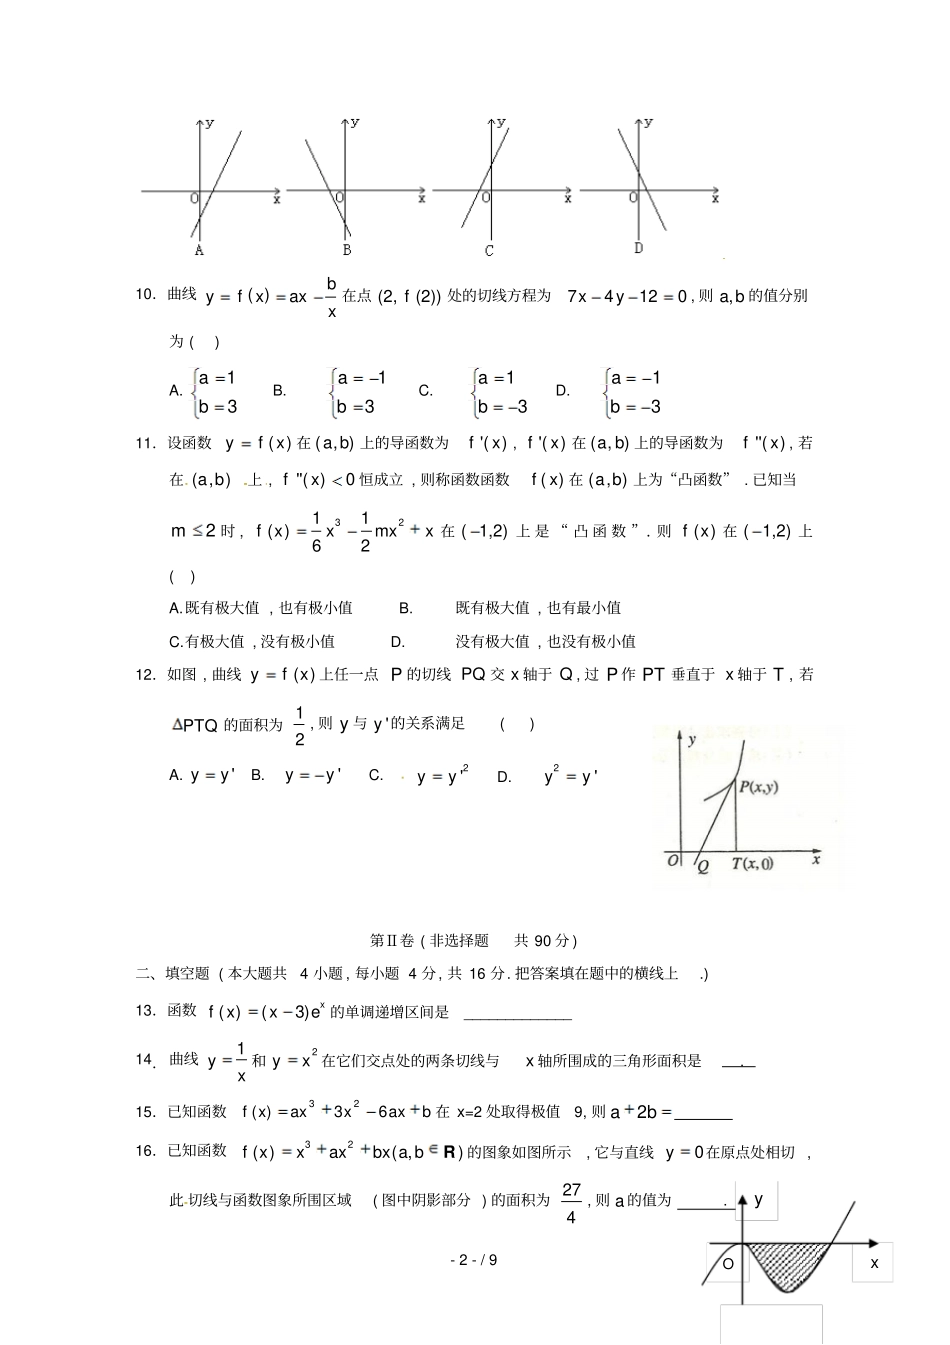 y y y y
O x O x O x O x
A B C D
10. 曲线 y = f (x) = ax − b/x 在点 (2, f (2)) 处的切线方程为 7x − 4y − 12 = 0 , 则 a,b 的值分别
为 ( )
A. { a = 1 b = 3 B. { a = −1 b = 3 C. { a = 1 b = −3 D. { a = −1 b = −3
11. 设函数 y = f (x) 在 (a,b) 上的导函数为 f '(x) , f '(x) 在 (a,b) 上的导函数为 f ''(x) , 若
在 (a,b) 上 , f ''(x) < 0 恒成立 , 则称函数函数 f (x) 在 (a,b) 上为“凸函数” . 已知当
m ≤ 2 时 , f (x) = 1/6 x³ − 1/2 mx² + x 在 ( −1,2) 上 是 “ 凸 函 数 ” . 则 f (x) 在 ( −1,2) 上
( )
A.既有极大值 , 也有极小值 B. 既有极大值 , 也有最小值
C.有极大值 , 没有极小值 D. 没有极大值 , 也没有极小值
12. 如图 , 曲线 y = f (x) 上任一点 P 的切线 PQ 交 x 轴于 Q , 过 P 作 PT 垂直于 x 轴于 T , 若
ΔPTQ 的面积为 1/2 , 则 y 与 y '的关系满足 ( )
A. y = y ' B. y = −y ' C. y = y '² D. y² = y '
y
P(x,y)
O Q T(x,0) x
第Ⅱ卷 ( 非选择题 共 90 分 )
二、填空题 ( 本大题共 4 小题 , 每小题 4 分 , 共 16 分 . 把答案填在题中的横线上 .)
13. 函数 f (x) = (x − 3)eˣ 的单调递增区间是 _____________
14. 曲线 y = 1/x 和 y = x² 在它们交点处的两条切线与 x 轴所围成的三角形面积是 ____.
15. 已知函数 f (x) = ax³ + 3x² − 6ax + b 在 x=2 处取得极值 9, 则 a + 2b = _______
16. 已知函数 f (x) = x³ + ax² + bx(a,b ∈ R) 的图象如图所示 , 它与直线 y = 0 在原点处相切 ,
此切线与函数图象所围区域 ( 图中阴影部分 ) 的面积为 27/4 , 则 a 的值为 ______.
y
O x
- 2 - / 9